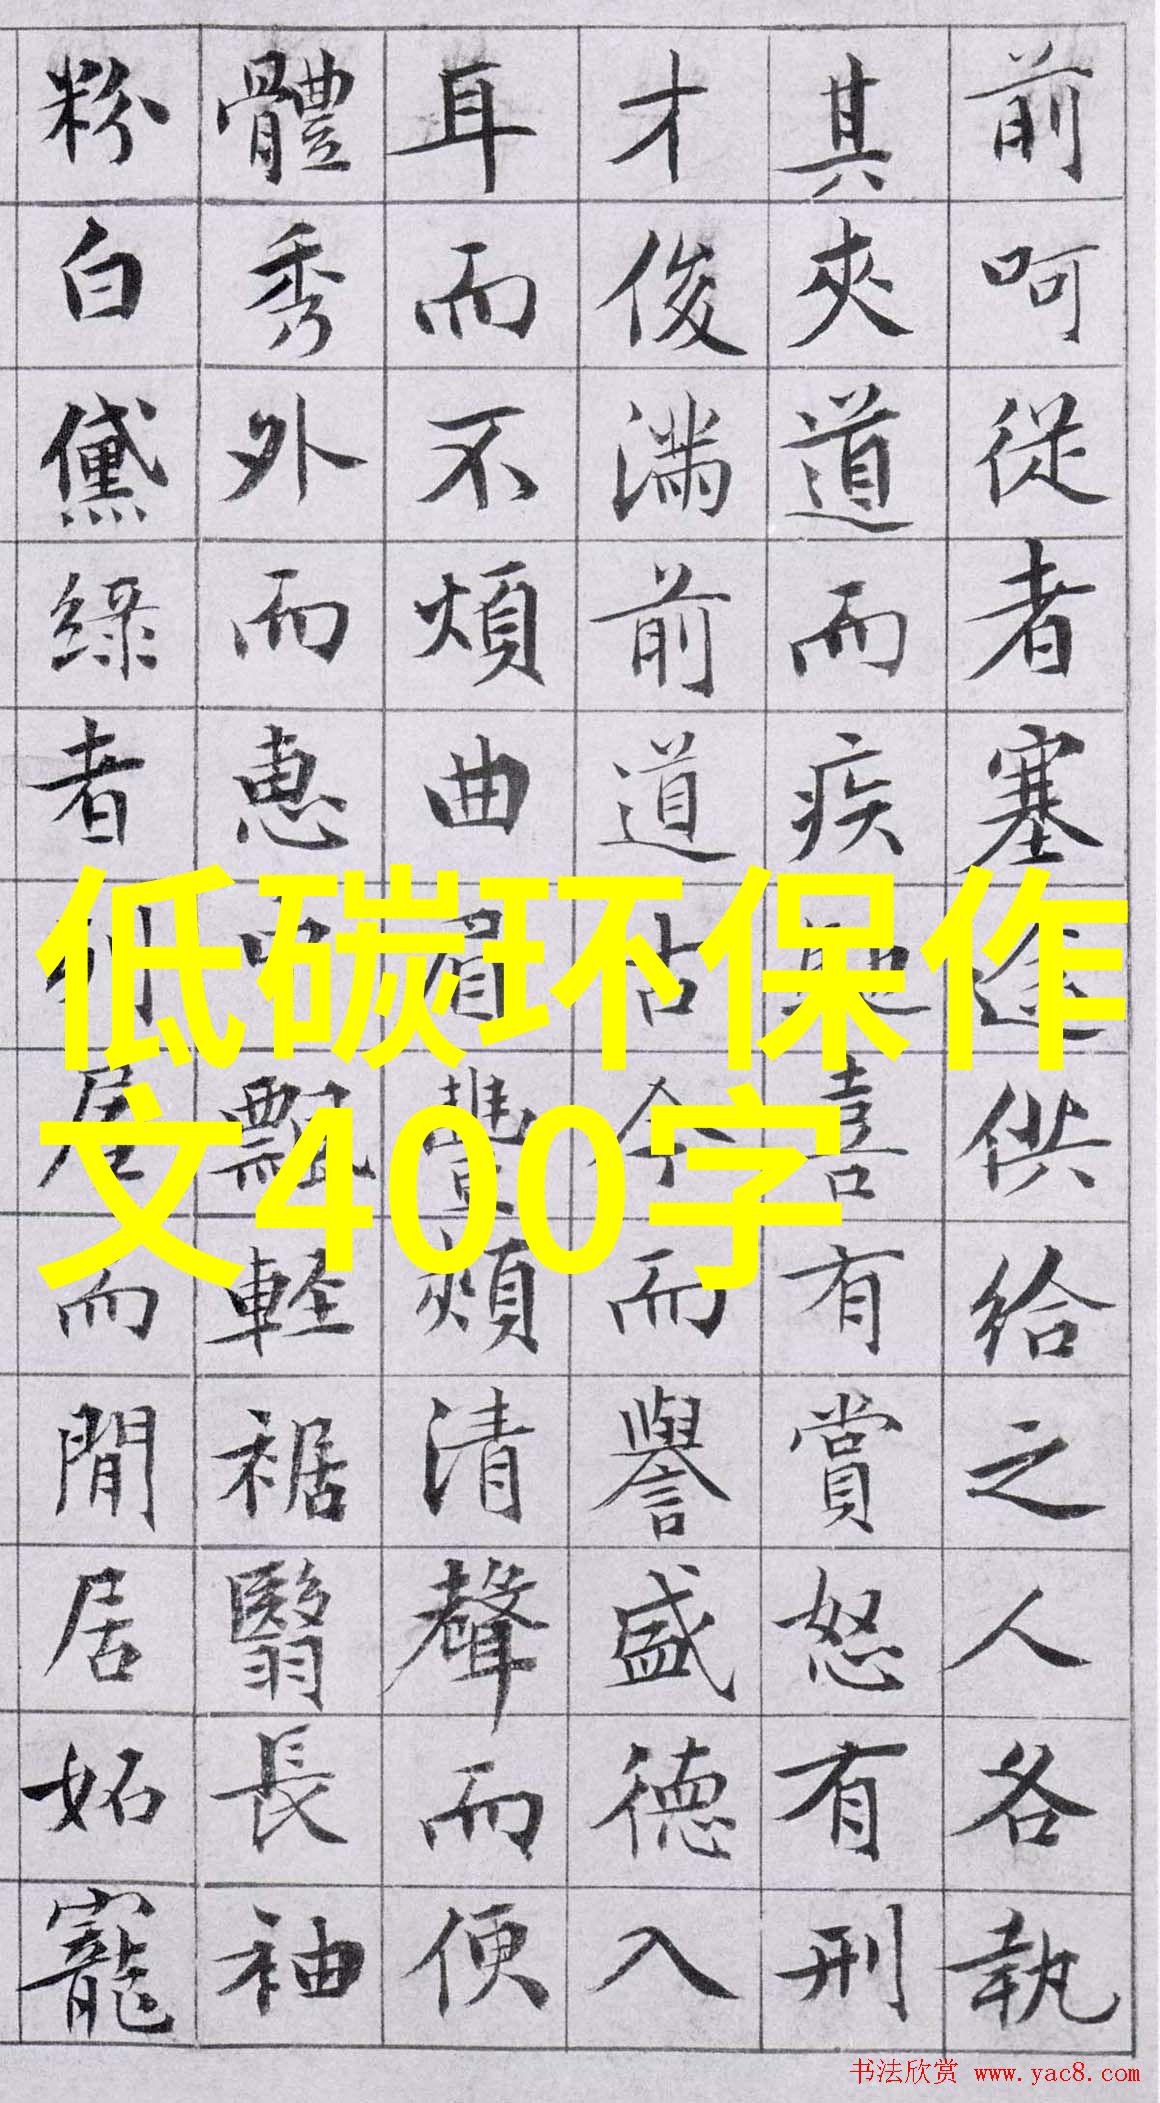 前呵從者塞途供給之人各執
其夾道而疾馳喜有賞怒有刑
才俊滿前道古今而譽盛德入
耳而不煩曲眉豐頰清聲而便
體秀外而惠中飄輕裾翳長袖
粉白黛綠者列屋而閒居妬寵
低碳环保作
文400字
书法欣赏 www.yac8.com